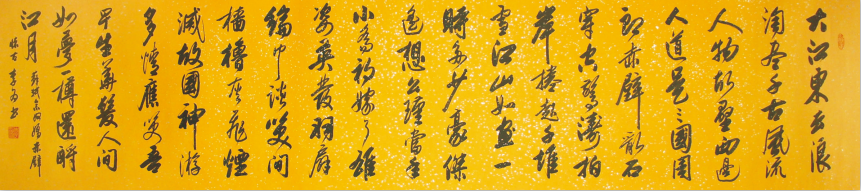 大江東去浪
淘盡千古風流
人物故壘西邊
人道是三國周
郎赤壁亂石
穿空驚濤拍
岸捲起千堆
雪江山如畫一
時多少豪傑
遙想公瑾當年
小喬初嫁了雄
姿英發羽扇
綸巾談笑間
檣櫓灰飛煙
滅故國神游
多情應笑吾
早生華髮人間
如夢一樽還酹
江月